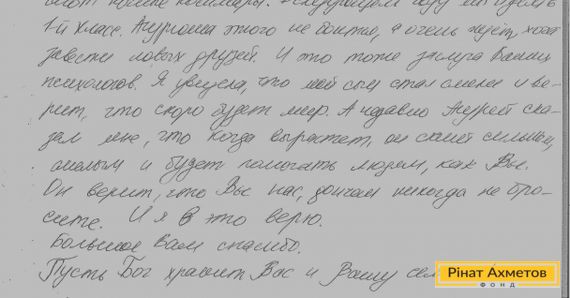 снят ночные кошмары. В следующем году мы идём в
1-й класс. Андрюша этого не боится, а очень ждет, хочет
завести новых друзей. И это тоже заслуга Ваших
психологов. Я увидела, что мой сын стал смелее и ве-
рит, что скоро будет мир. А недавно Андрей ска-
зал мне, что когда вырастет, он станет сильным,
смелым и будет помогать людям, как Вы.
Он верит, что Вы нас, дончан никогда не бро-
сите. И я в это верю.
Большое Вам спасибо.
Пусть Бог хранит Вас и Вашу
Рінат Ахметов
ФОНД